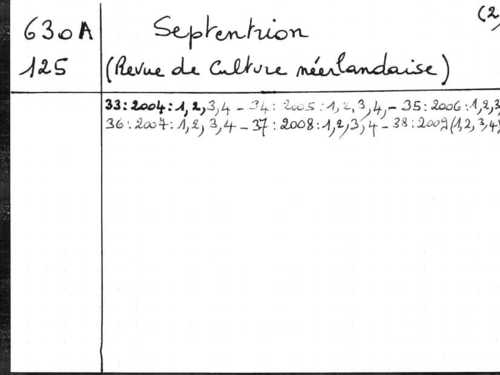 (2,
630A Septentrion
125 (Revue de Culture néerlandaise)
33:2004:1,2,3,4 – 34:2005:1,2,3,4, – 35:2006:1,2,3
36:2007:1,2,3,4 – 37:2008:1,2,3,4 – 38:2009(1,2,3,4)